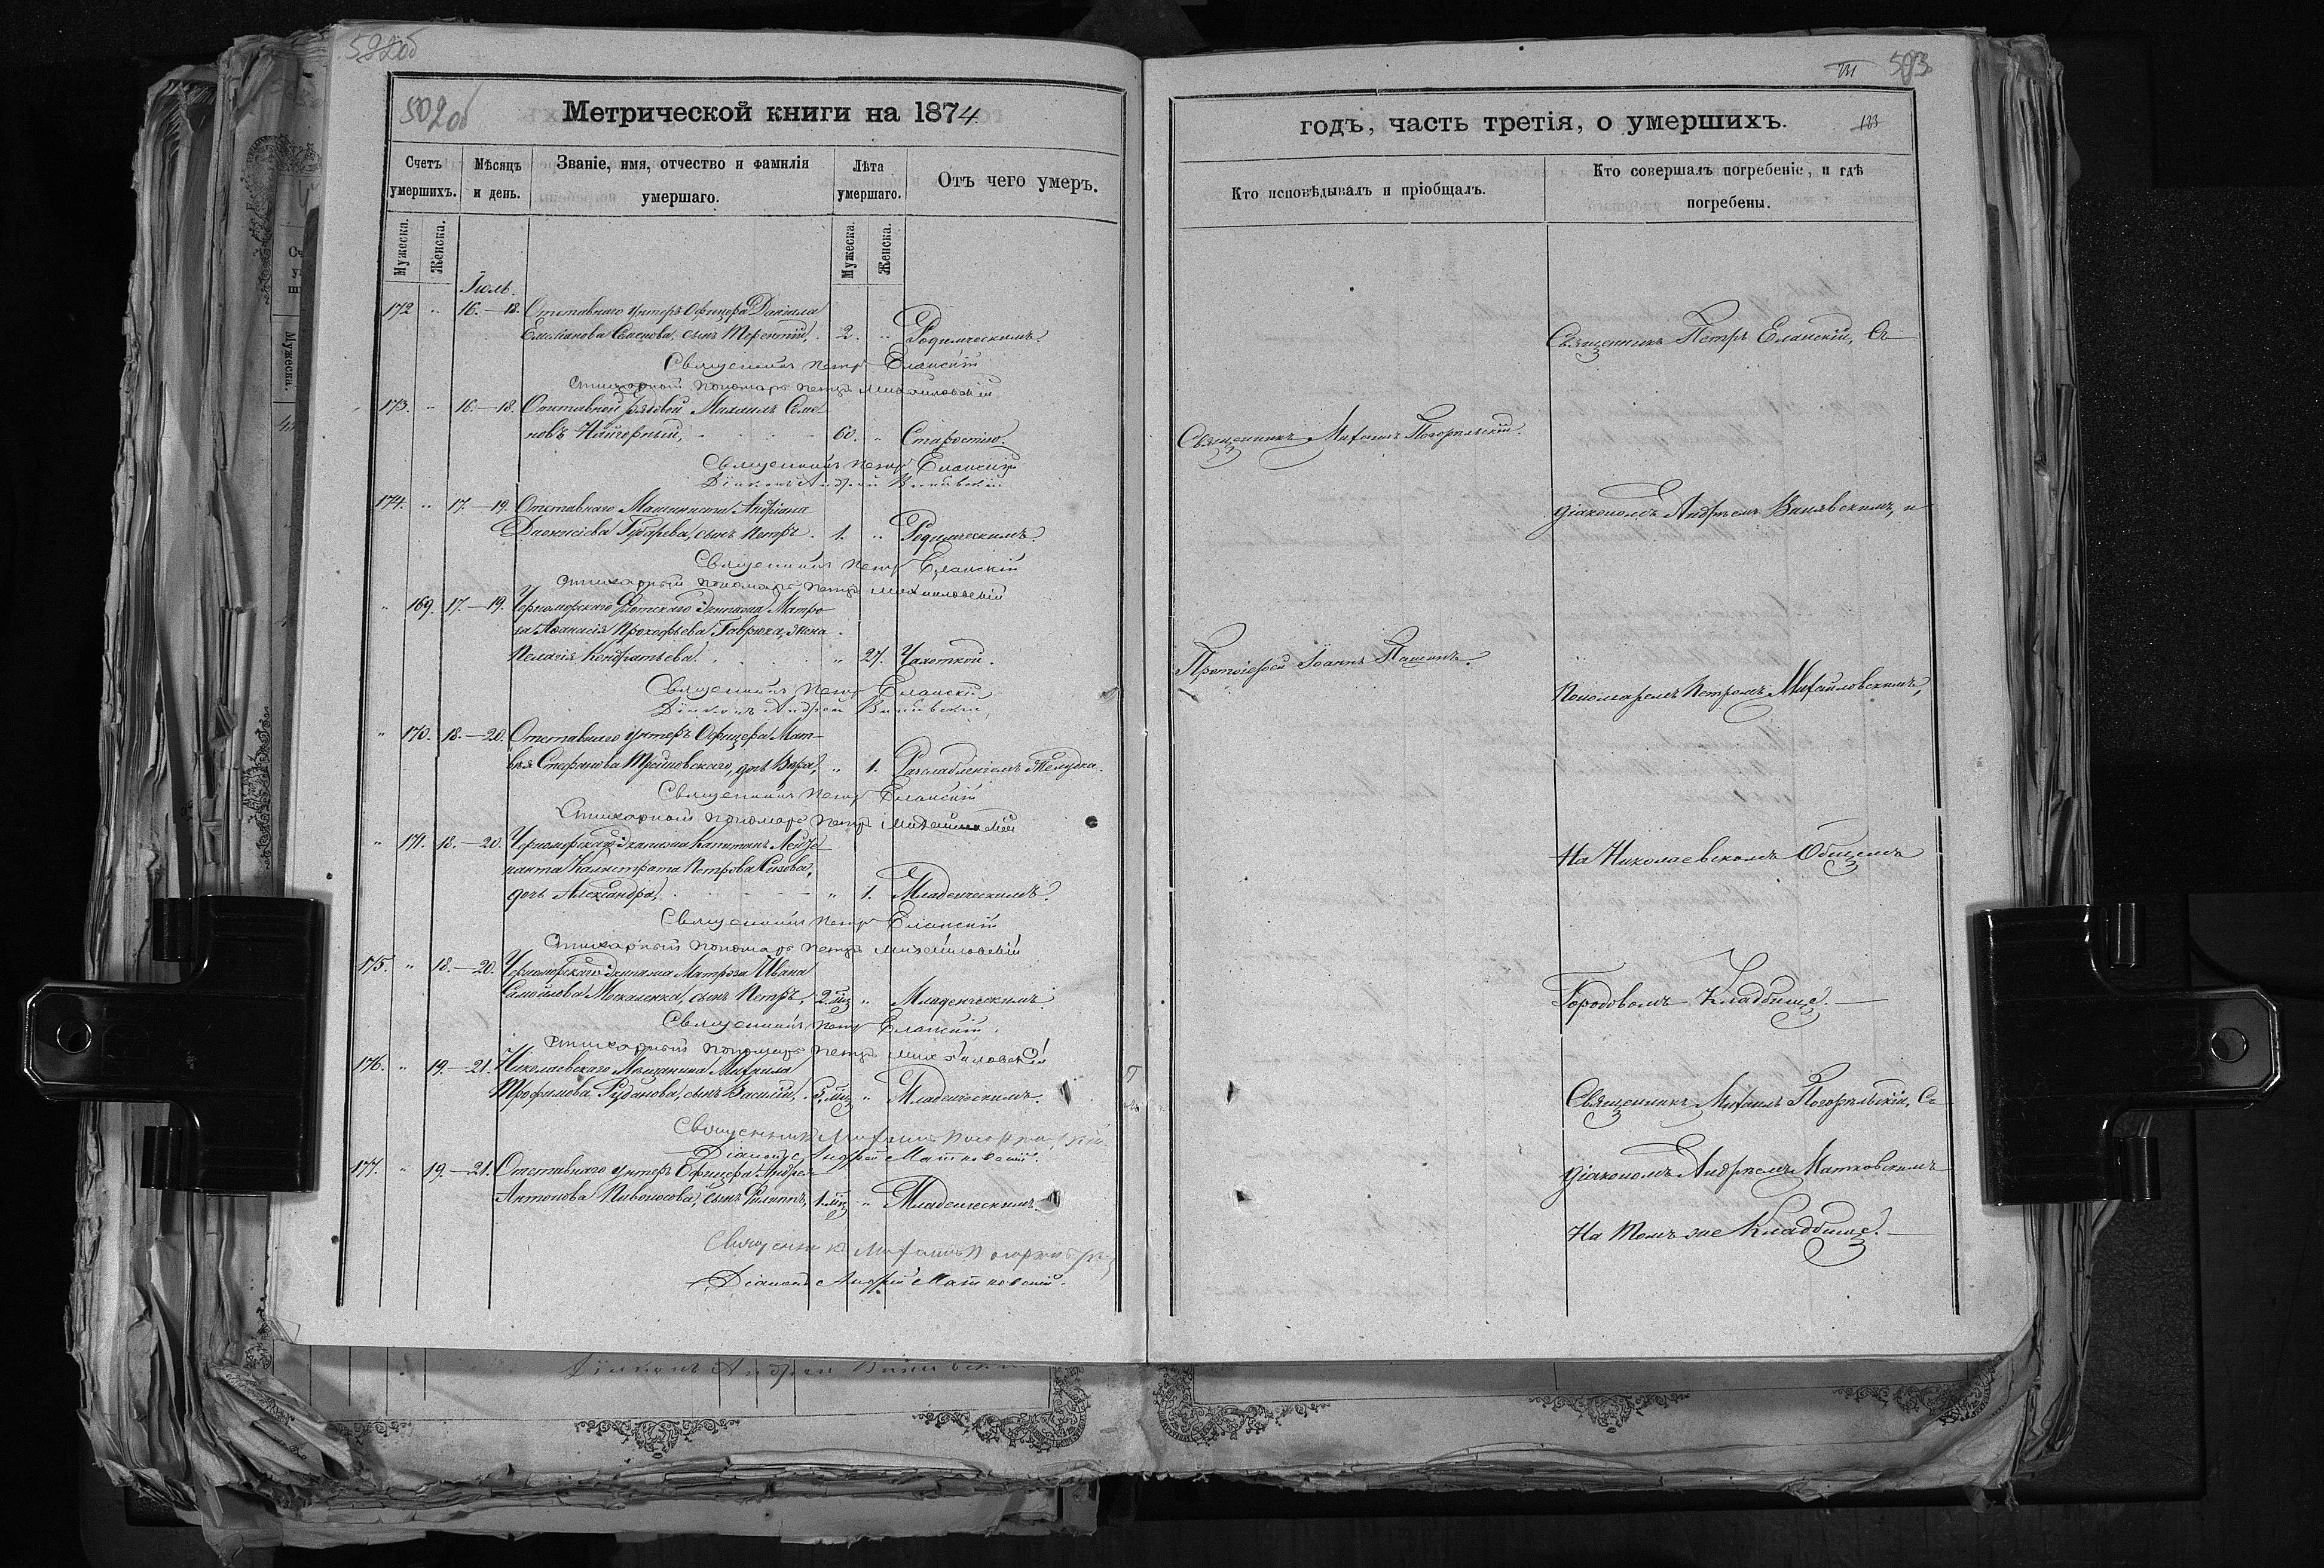 502об
Метрической книги на 1874
Счетъ умершихъ.
Мѣсяцъ и день.
Званіе, имя, отчество и фамилія умершаго.
Лѣта умершаго.
Отъ чего умеръ.
Мужеска.
Женска.
Мужеска.
Женска.
Іюль.
172 " 16.—18. Отставнаго Унтеръ Офицера Даніила
Емельянова Семенова, сынъ Терентій, 2. " Родимческимъ.
Священникъ Петръ Еланскій
Стихарный пономарь Петръ Михайловскій
173. " 16.—18. Отставной рядовой Михаилъ Семе
новъ 60. " Старостію.
Священникъ Петръ Еланскій
Діаконъ Андрей
174. " 17.—19. Отставнаго Машиниста Андріана
Діонисіева Губарева, сынъ Петръ. 1. " Родимческимъ.
Священникъ Петръ Еланскій
Стихарный пономарь Петръ Михайловскій
" 169. 17.—19. Черноморскаго Флотскаго Экипажа Матро
за Аѳанасія Прокофьева Гаврюка, жена
Пелагія Кондратьева. " 27. Чахоткой.
Священникъ Петръ Еланскій
Діаконъ Андрей
" 170. 18.—20. Отставнаго Унтеръ Офицера Мат-
вѣя Стефанова дочь Вѣра, " 1. Разслабленіемъ Желудка.
Священникъ Петръ Еланскій
Стихарный пономарь Петръ Михайловскій
" 171. 18.—20. Черноморскаго Экипажа Капитанъ Лейте
нанта Калистрата Петрова Сизова,
дочь Александра, " 1. Младенческимъ.
Священникъ Петръ Еланскій
Стихарный пономарь Петръ Михайловскій
175. " 18.—20. Черноморскаго Экипажа Матроза Ивана
Самойлова Москаленка, сынъ Петръ, 2. мц " Младенческимъ.
Священникъ Петръ Еланскій.
Стихарный пономарь Петръ Михайловскій
176. " 19.—21. Николаевскаго Мѣщанина Михаила
Трофимова Руданова, сынъ Василій, мц " Младенческимъ.
Священникъ Михаилъ Погорѣльскій
Діаконъ Андрей Матковскій.
177. " 19.—21. Отставнаго Унтеръ Офицера Андрея
Антонова Пивоносова, сынъ Филиппъ, 1. мц " Младенческимъ.
Священникъ Михаилъ Погорѣльскій
Діаконъ Андрей Матковскій.
503
133
годъ, часть третія, о умершихъ.
Кто исповѣдывалъ и пріобщалъ.
Кто совершалъ погребеніе, и гдѣ погребены.
Священникъ Петръ Еланскій, Съ
Священникъ Михаилъ Погорѣльскій.
діакономъ Андреемъ и
Протоіерей Іоаннъ
Пономаремъ Петромъ Михайловскимъ,
На Николаевскомъ Общемъ
Городовомъ Кладбище.
Священникъ Михаилъ Погорѣльскій, Съ
діакономъ Андреемъ Матковскимъ
На томъ же Кладбище.